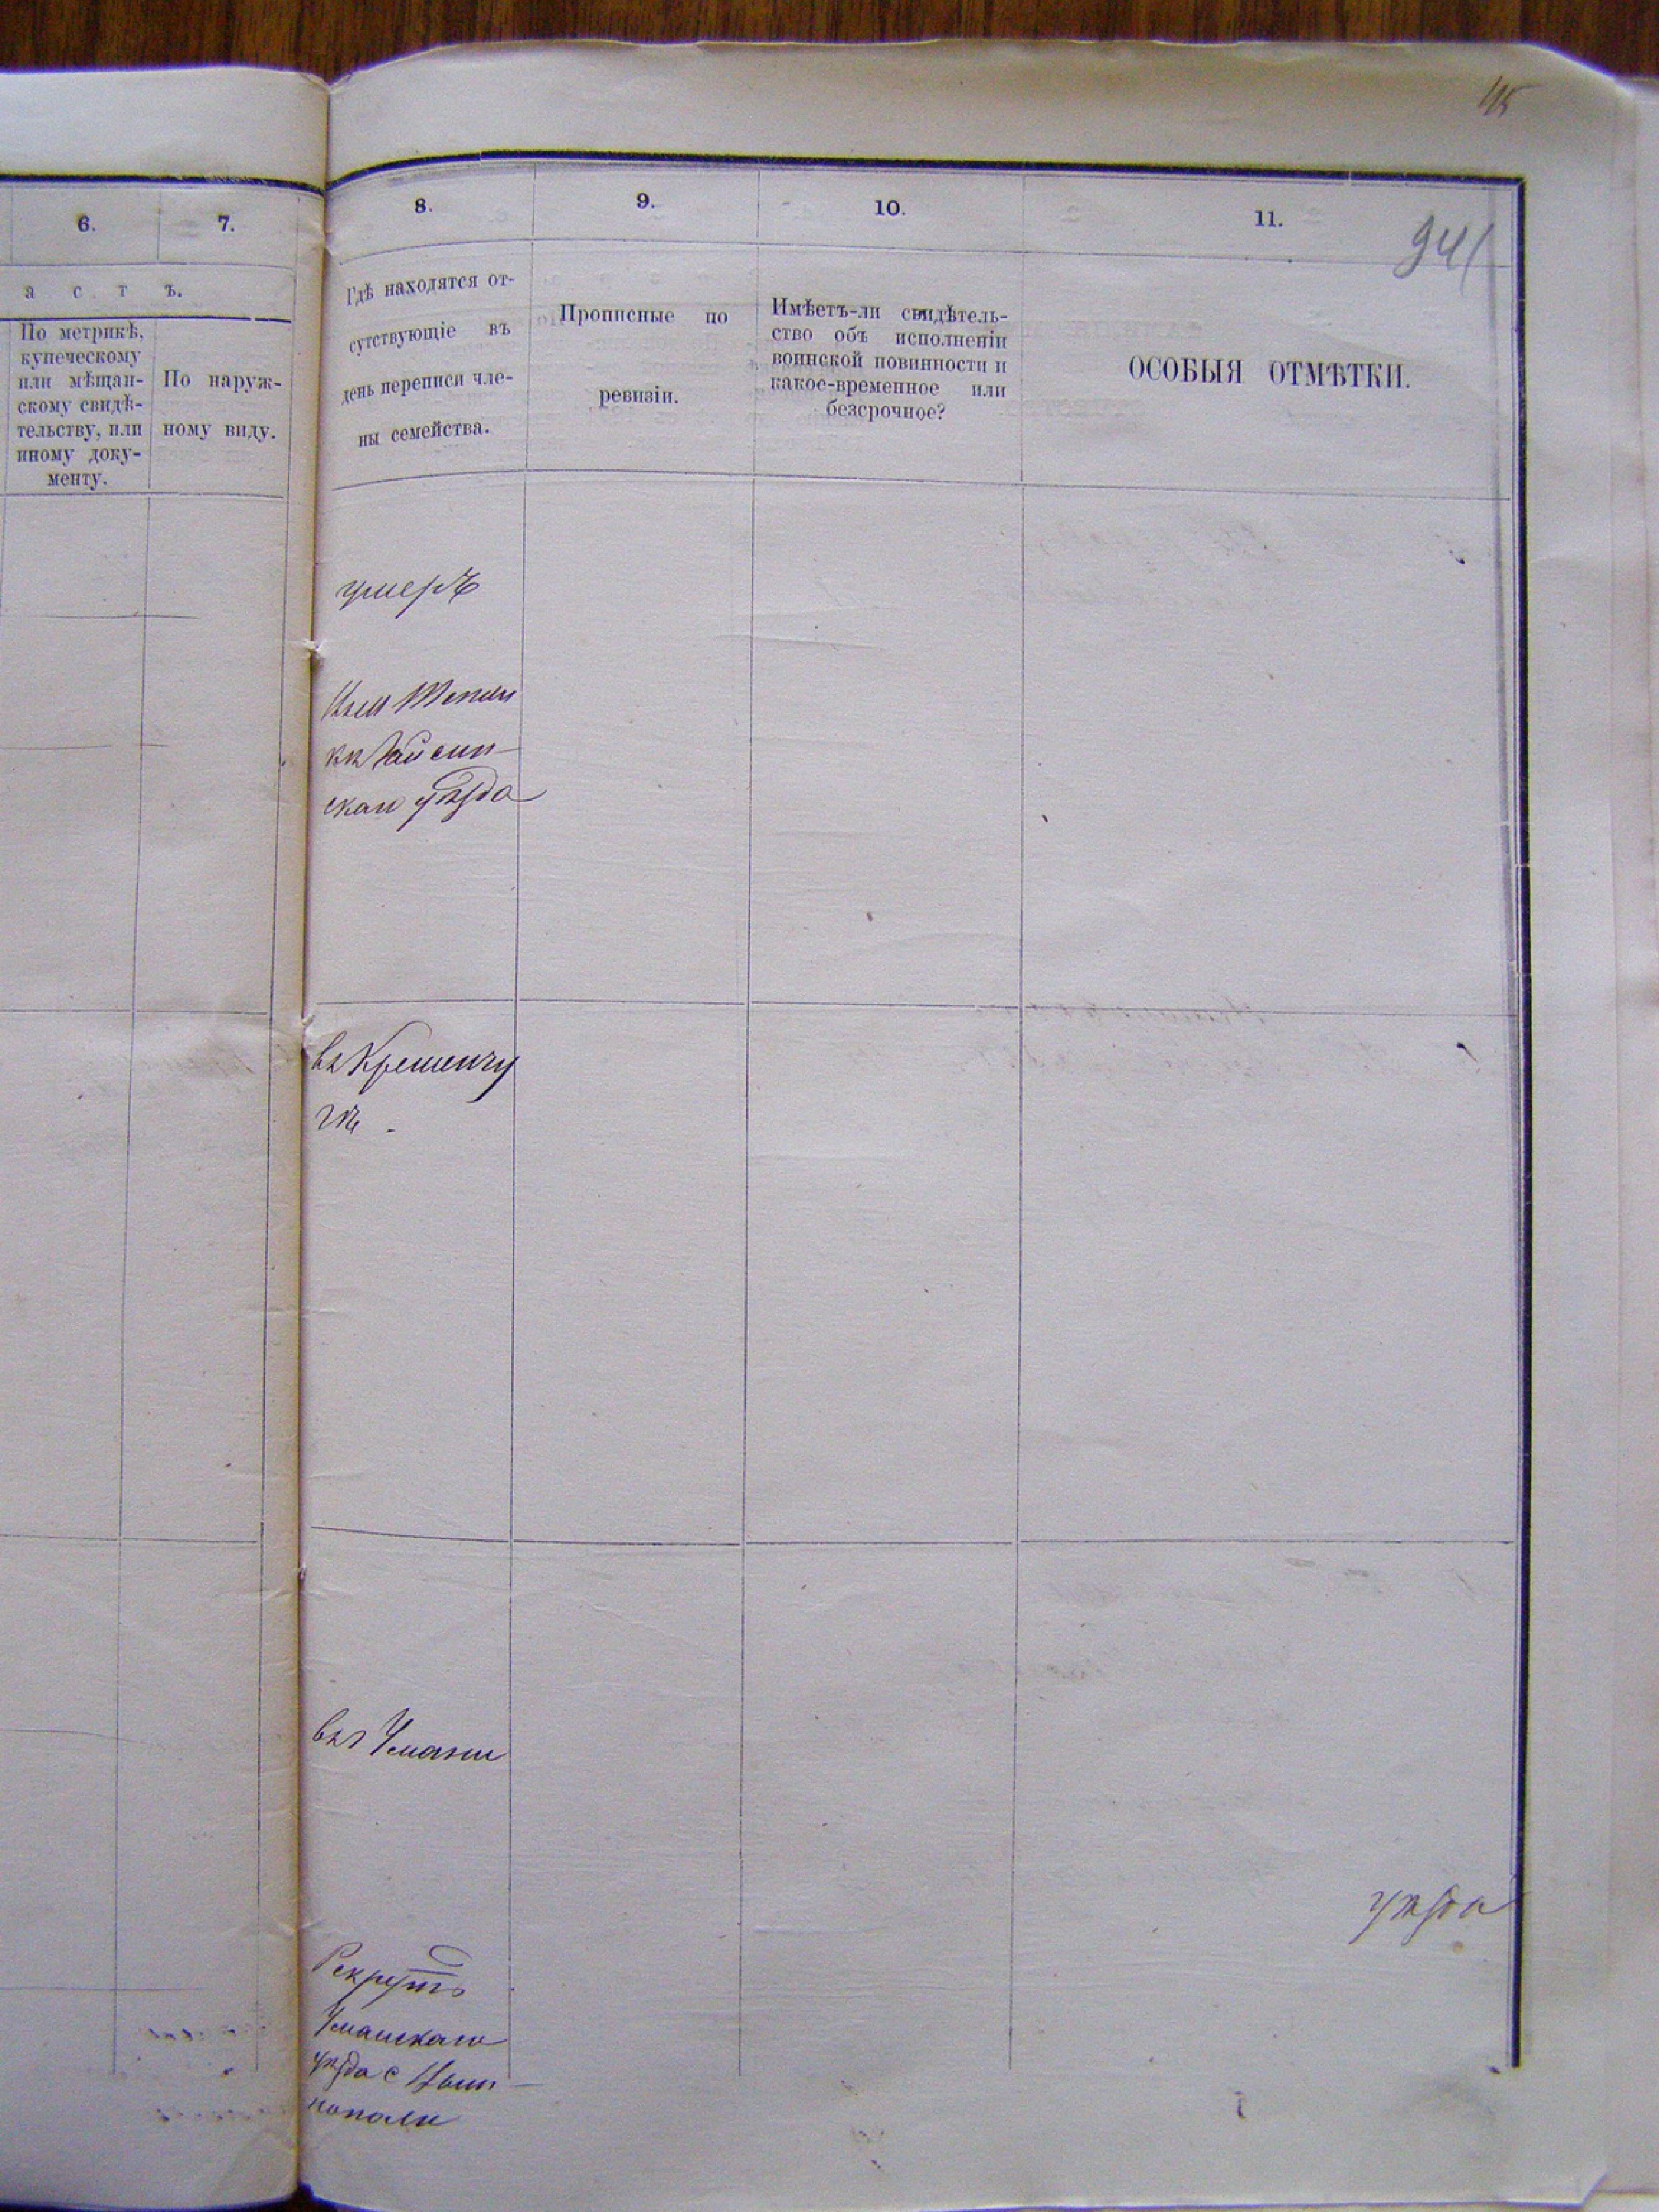 45
6.
7.
8.
9.
10.
11.
941
а с т ъ.
По метрикѣ,
купеческому
или мѣщан-
скому свидѣ-
тельству, или
иному доку-
менту.
По наруж-
ному виду.
Гдѣ находятся от-
сутствующіе въ
день переписи чле-
ны семейства.
Прописные по
ревизіи.
Имѣетъ-ли свидѣтель-
ство объ исполненіи
воинской повинности и
какое-временное или
безсрочное?
ОСОБЫЯ ОТМѢТКИ.
умеръ
Гайсин-
скаго уѣзда
въ Кременчу
гѣ
въ Умани
уѣзда
Рекрутъ
Уманскаго
уѣзда с